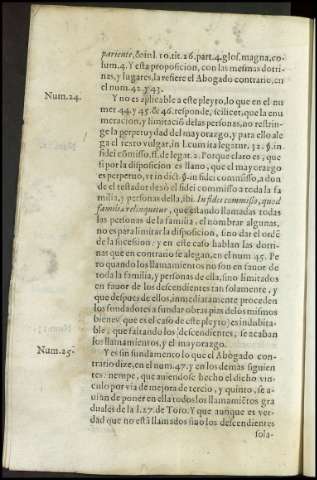 pariente, & in l. 10. tit. 26. part. 4. glos. magna, co-
lum. 4. Y esta proposicion, con las mesmas dotri-
nas, y lugares, la refiere el Abogado contrario, en
el num. 42. y 43.
Num. 24.
Y no es aplicable a este pleyto, lo que en el nu
mer. 44. y 45. & 46. responde, scilicet, que la enu
meracion, y limitació de las personas, no restrin-
ge la perpetuydad del mayorazgo, y para ello ale-
ga el texto vulgar, in l. cum ita legatur. 32. §. in
fidei cōmisso. ff. de legat. 2. Porque claro es, que
si por la disposicion es llano, que el mayorazgo
es perpetuo, vt in dict. §. in fidei commisso, a don
de el testador dexò el fidei commisso a toda la fa
milia, y personas della, ibi. In fidei commisso, quod
familiæ relinquitur, que estando llamadas todas
las personas de la familia, el nombrar algunas,
no es para limitar la disposicion, sino dar el ordē
de la sucesion: y en este caso hablan las dotri-
nas que en contrario se alegan, en el num. 45. Pe
ro quando los llamamientos no son en fauor de
toda la familia, y personas de ella, sino limitados
en fauor de los descendientes tan solamente, y
que despues de ellos, inmediatamente proceden
los fundadores a fundar obras pias de los mismos
bienes (que es el caso de este pleyto) es indubita-
ble, que faltando los descendientes, se acaban
los llamamientos, y el mayorazgo.
Num. 25.
Y es sin fundamento lo que el Abogado con-
trario dize, en el num. 47. y en los demas siguien
tes: nempe, que auiendose hecho el dicho vin-
culo por via de mejora de tercio, y quinto, se a-
uian de poner en ella todos los llamamiētos gra
duales de la l. 27. de Toro. Y que aunque es ver-
dad que no està llamados sino los descendientes
sola-